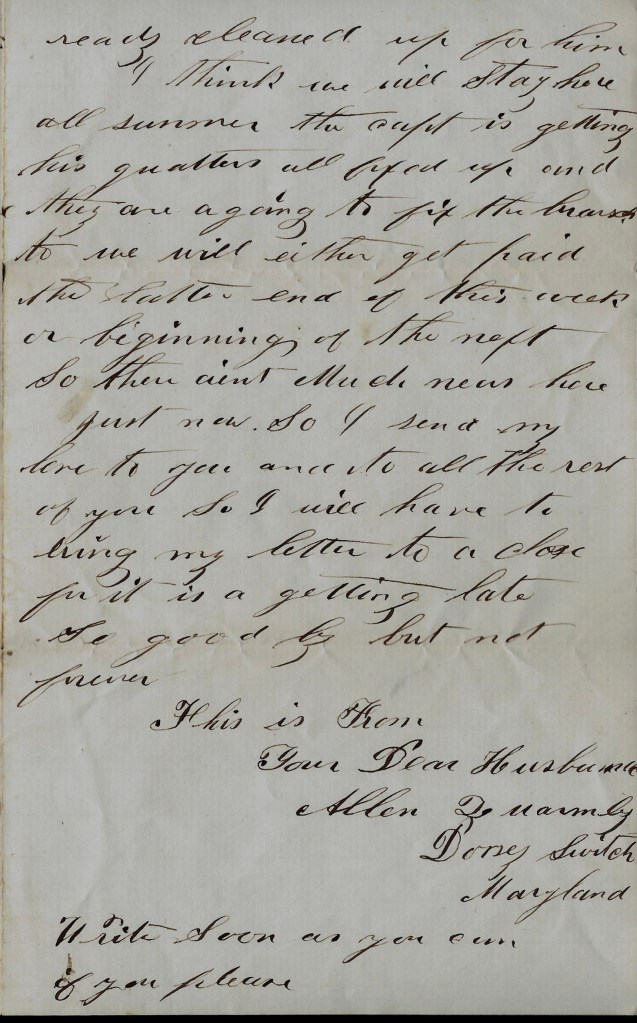 ready cleaned up for him
I think we will Stay here
all summer the capt is getting
his quatters all fixed up and
they are a going to fix the
to we will either get paid
the latter end of this week
or biginning of the next
So there aint Much news here
just now. So I send my
love to you and to all the rest
of you So I will have to
bring my letter to a close
for it is a getting late
So good by but not
forever
This is From
Your Dear Husband
Allen Quarmby
Dorsey Switch
Maryland
Write Soon as you can
if you please